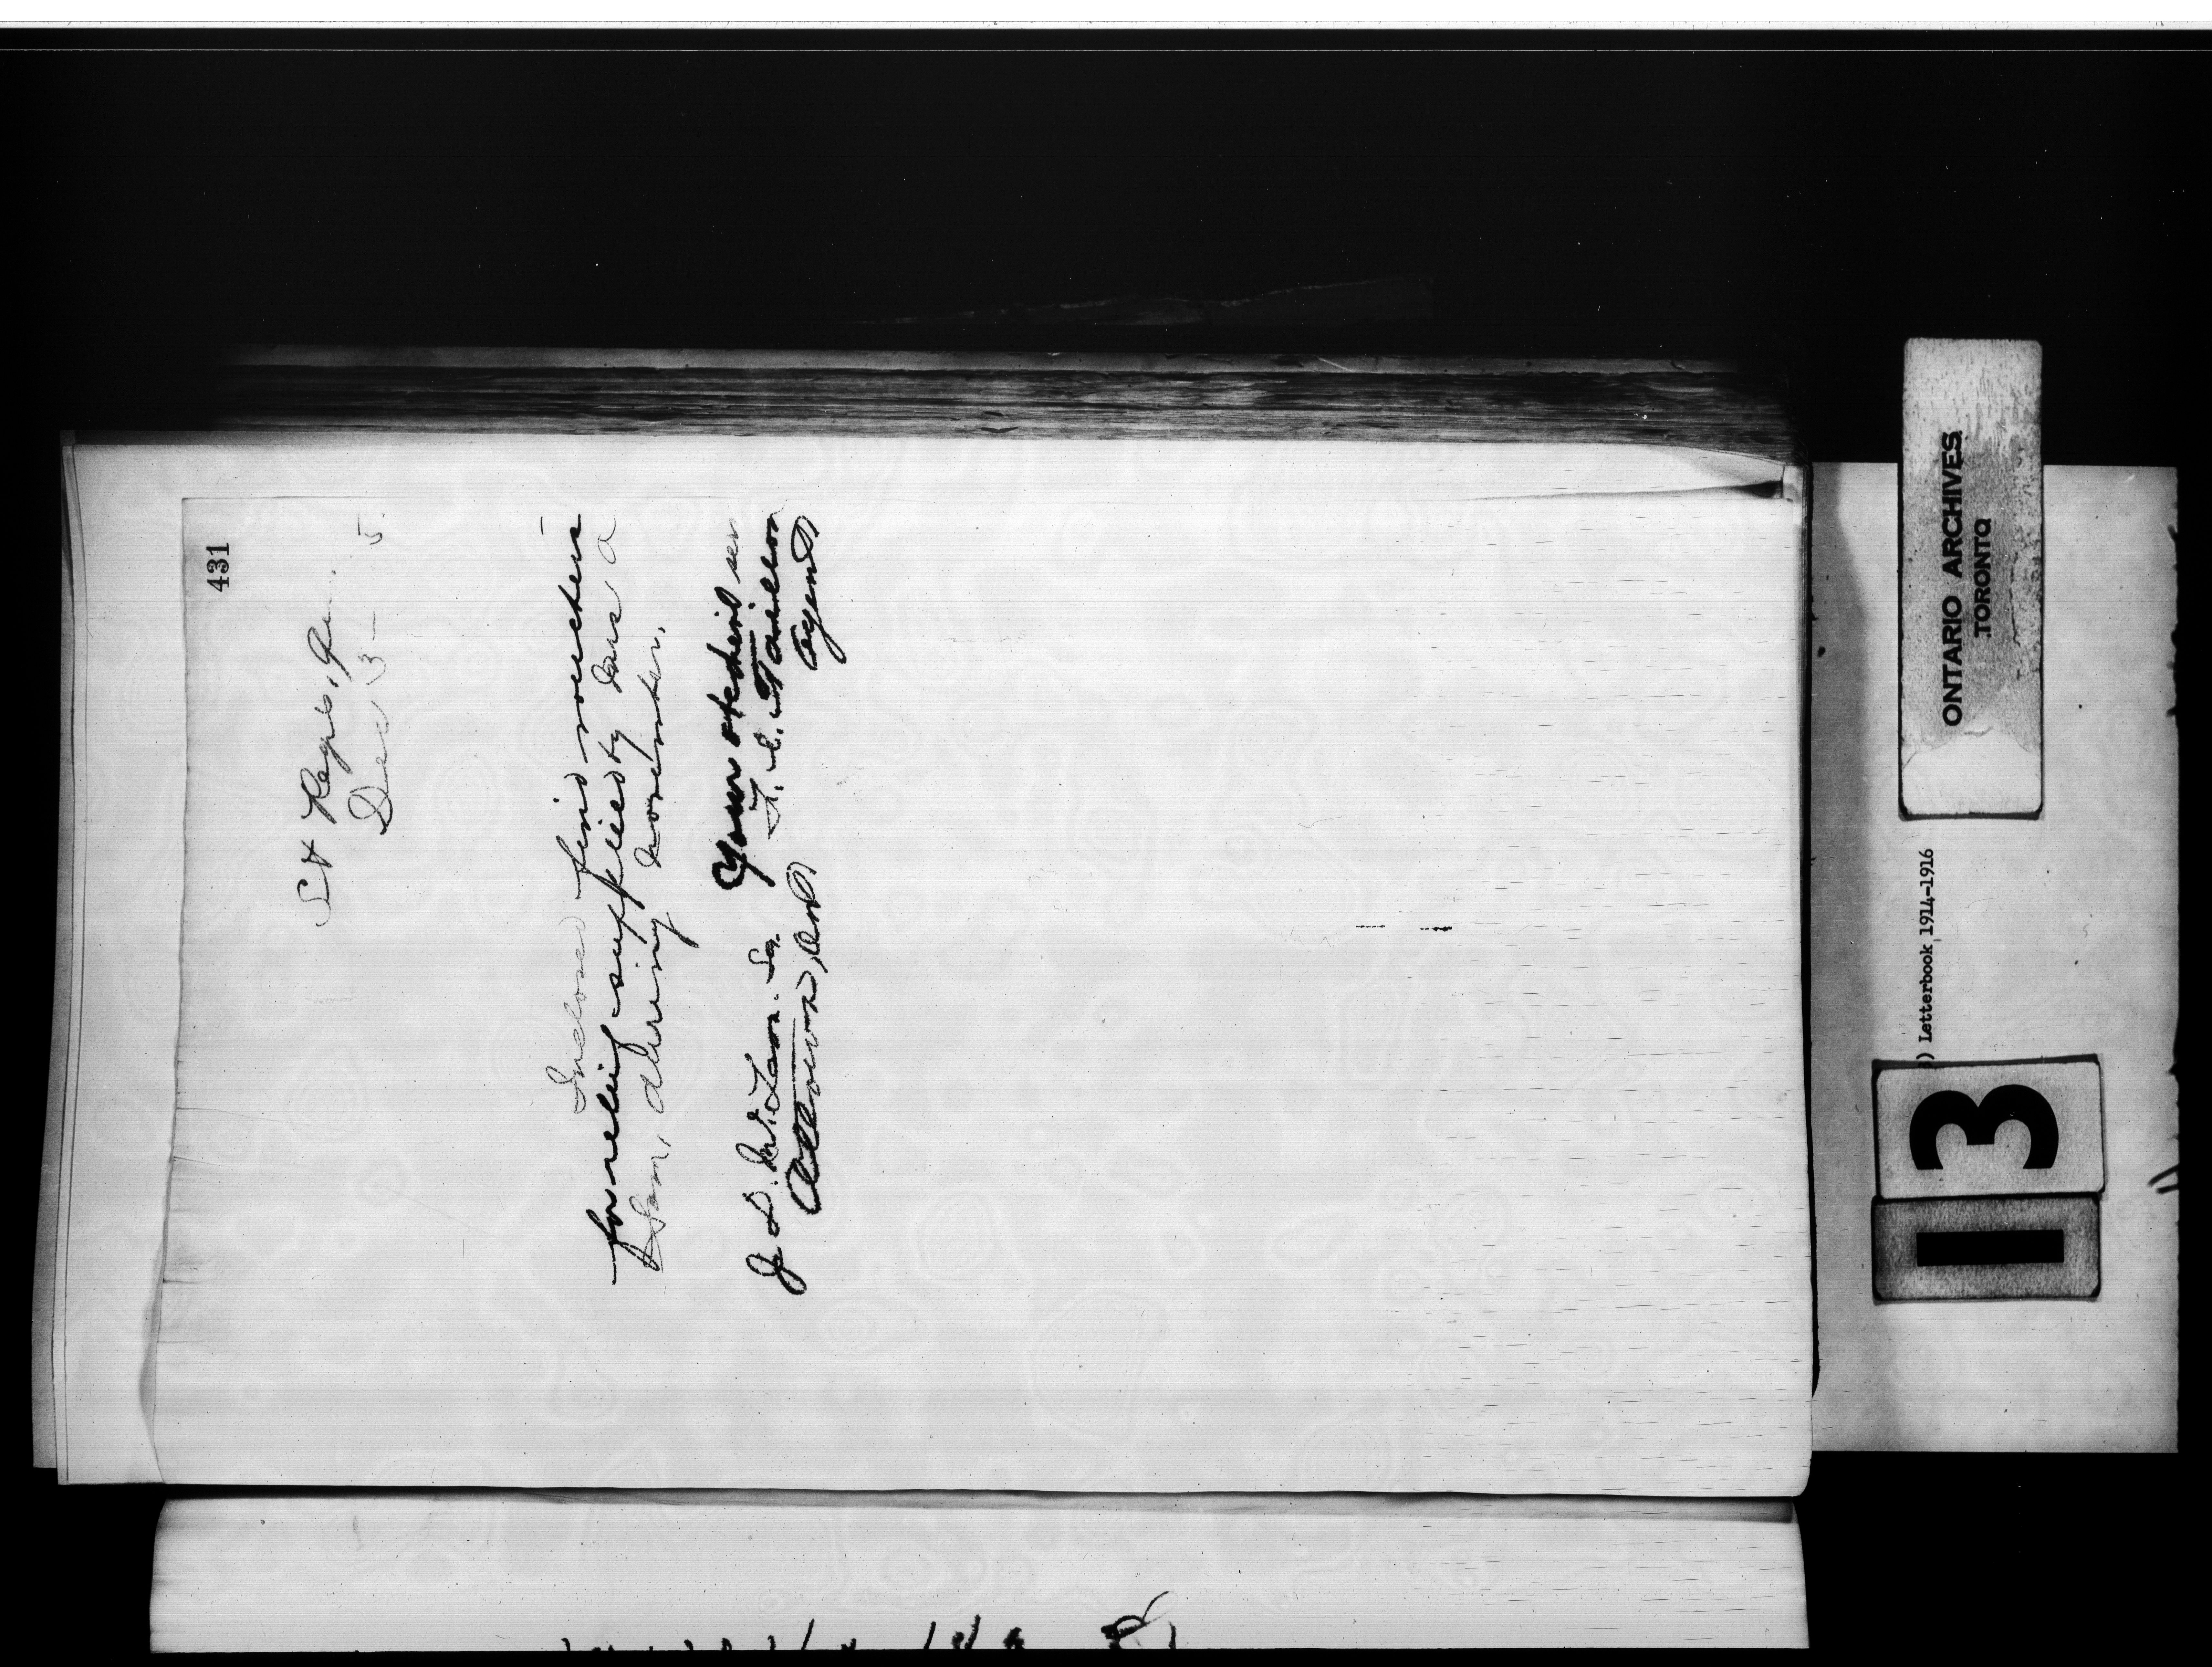 431
St Regis, Que.
Dec 13 — 5
Inclosed find vouchers
for relief supplied by
during November.
Your obedient ser
F. E. Taillon
Agent
J. D. McLean. Sq.
Ottawa, Ont
ONTARIO ARCHIVES
TORONTO
) Letterbook 1914-1916
13